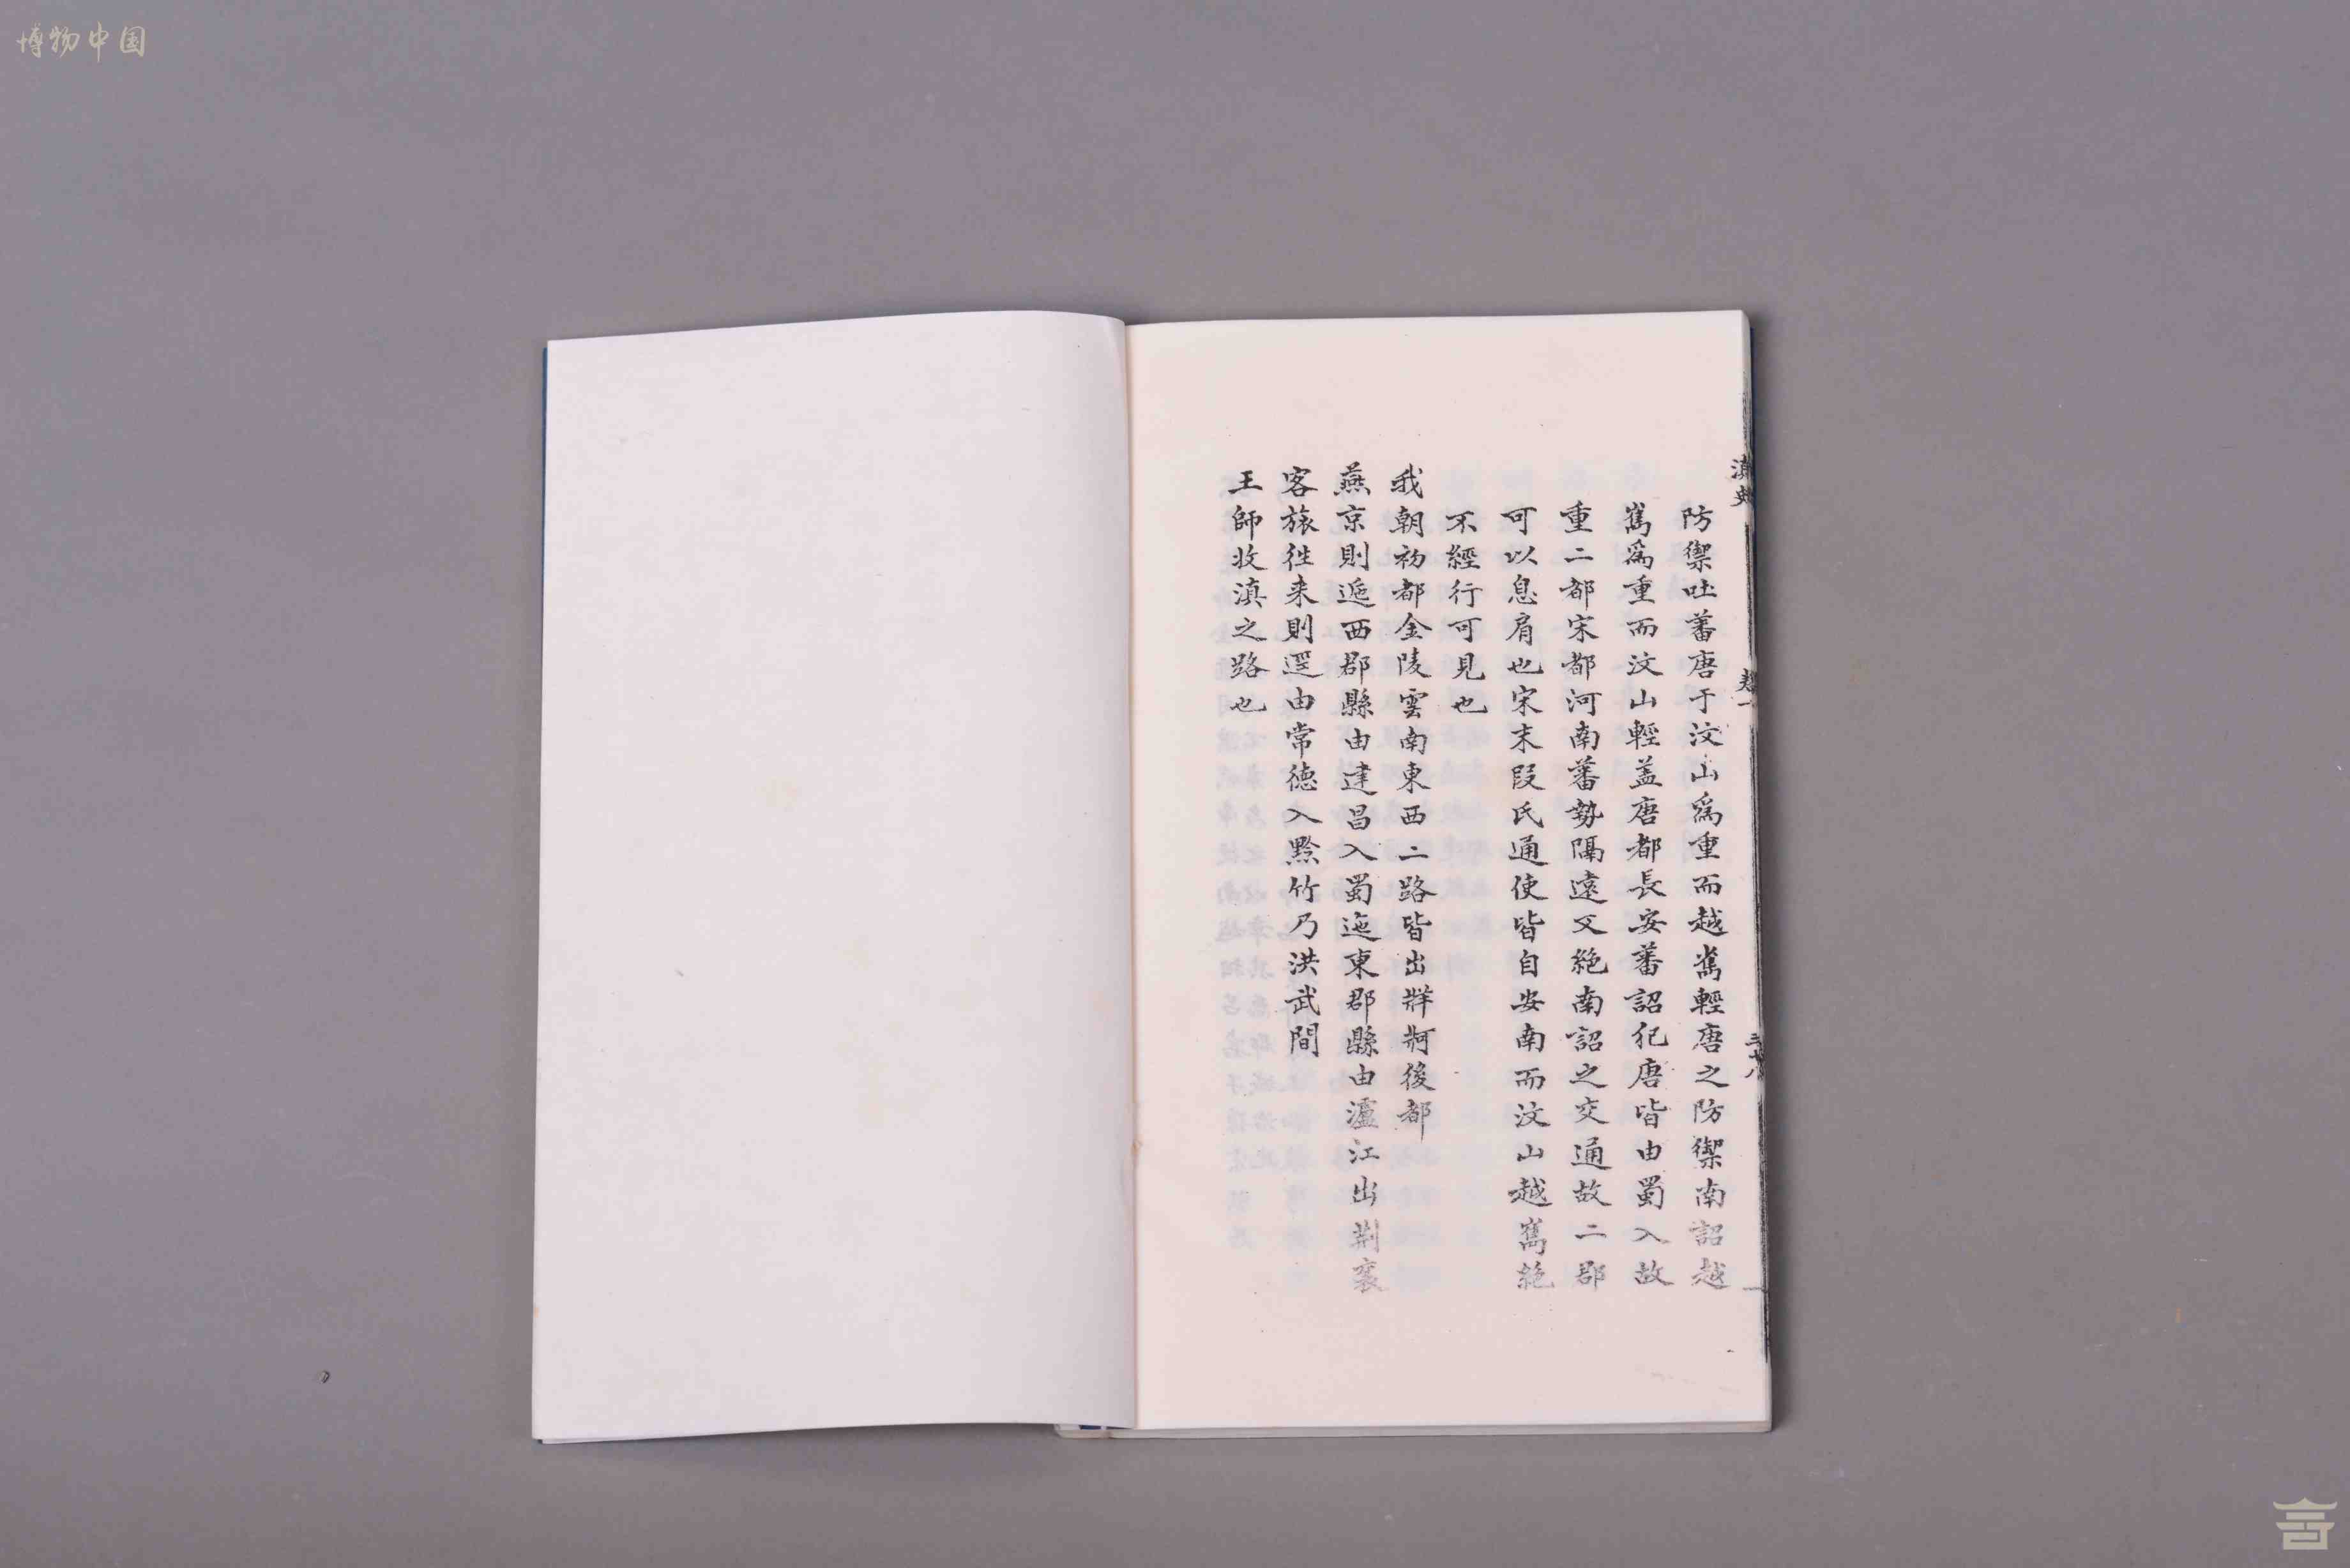 博物中国
防禦吐蕃唐于汶山爲重而越嶲輕唐之防禦南詔越
嶲爲重而汶山輕盖唐都長安蕃詔犯唐皆由蜀入故
重二都宋都河南蕃勢隔遠又絶南詔之交通故二郡
可以息肩也宋末段氏通使皆自安南而汶山越嶲絶
不經行可見也
我朝初都金陵雲南東西二路皆出牂牁後都
燕京則迤西郡縣由建昌入蜀迤東郡縣由瀘江出荆襄
客旅徃来則逕由常德入黔竹乃洪武間
王師收滇之路也